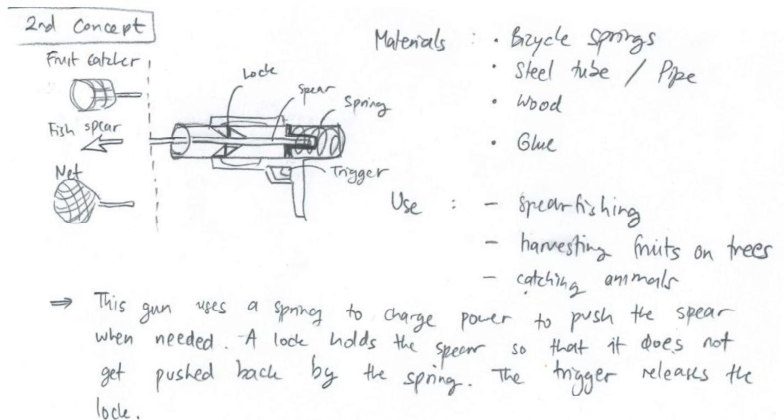 2nd Concept
Fruit catcher
Fish spear
Net
Lock
Spear
Spring
Trigger
Materials : • Bicycle springs
• Steel tube / Pipe
• Wood
• Glue
Use : – spearfishing
– harvesting fruits on trees
– catching animals
⇒ This gun uses a spring to charge power to push the spear
when needed. A lock holds the spear so that it does not
get pushed back by the spring. The trigger releases the
lock.